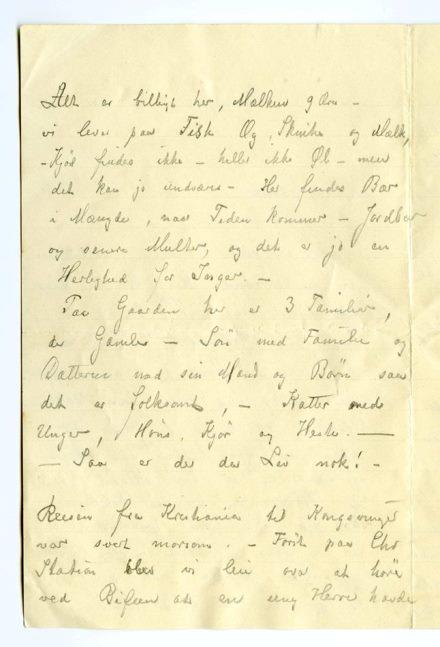 Alt er billigt her, Mælken 9 Øre -
vi lever paa Fisk Æg, Skinke og Mælk,
- Kjød findes ikke - heller ikke Øl - men
det kan jo undværes - Her findes Bær
i Mængde, naar Tiden kommer - Jordbær
og senere Multer, og det er jo en
Herlighed for -
Paa Gaarden her er 3 Familier,
de Gamle - Søn med Familie og
Datteren med sin Mand og Børn saa
det er folksomt, - Katter med
Unger, Høns, Kjør og Heste. -
- Saa er der da Liv nok! -
Reisen fra Kristiania til Kongsvinger
var svært morsom. - Først paa
Station blev vi over at høre
ved at en ung Herre havde